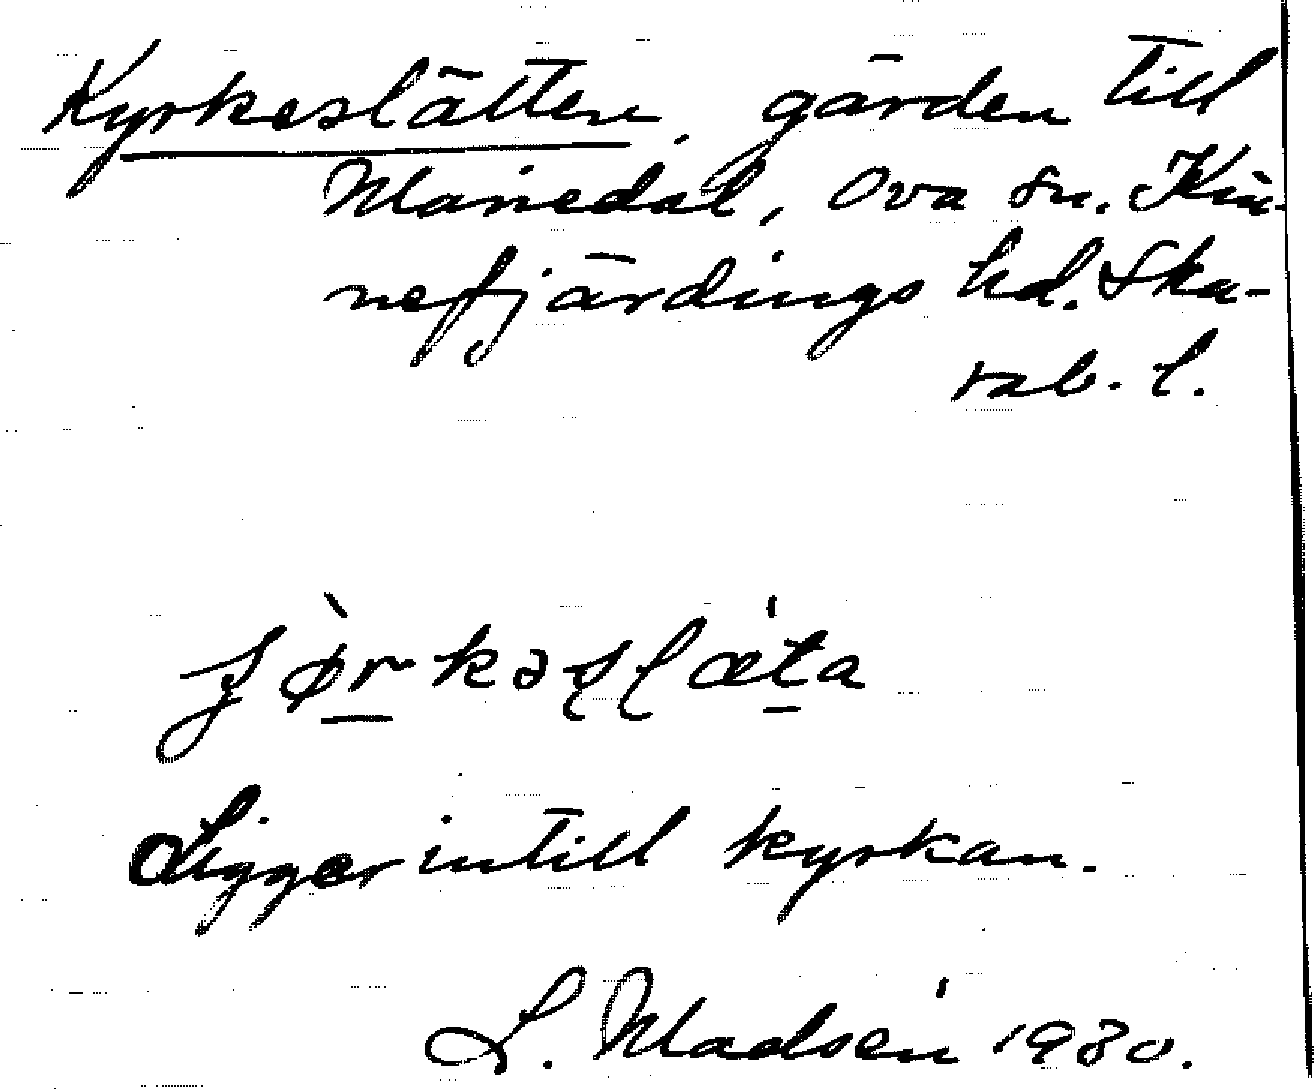 Kyrkeslätten, gärden till
Mariedal, Ova sn. Kin-
nefjärdings hd. Ska-
rab. l.
Ligger intill kyrkan.
L. Madsén 1930.